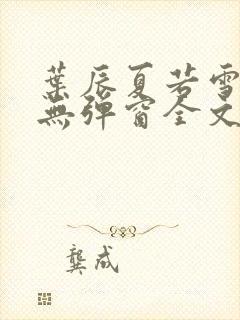 葉辰夏若雪
無彈窗全文
龔成